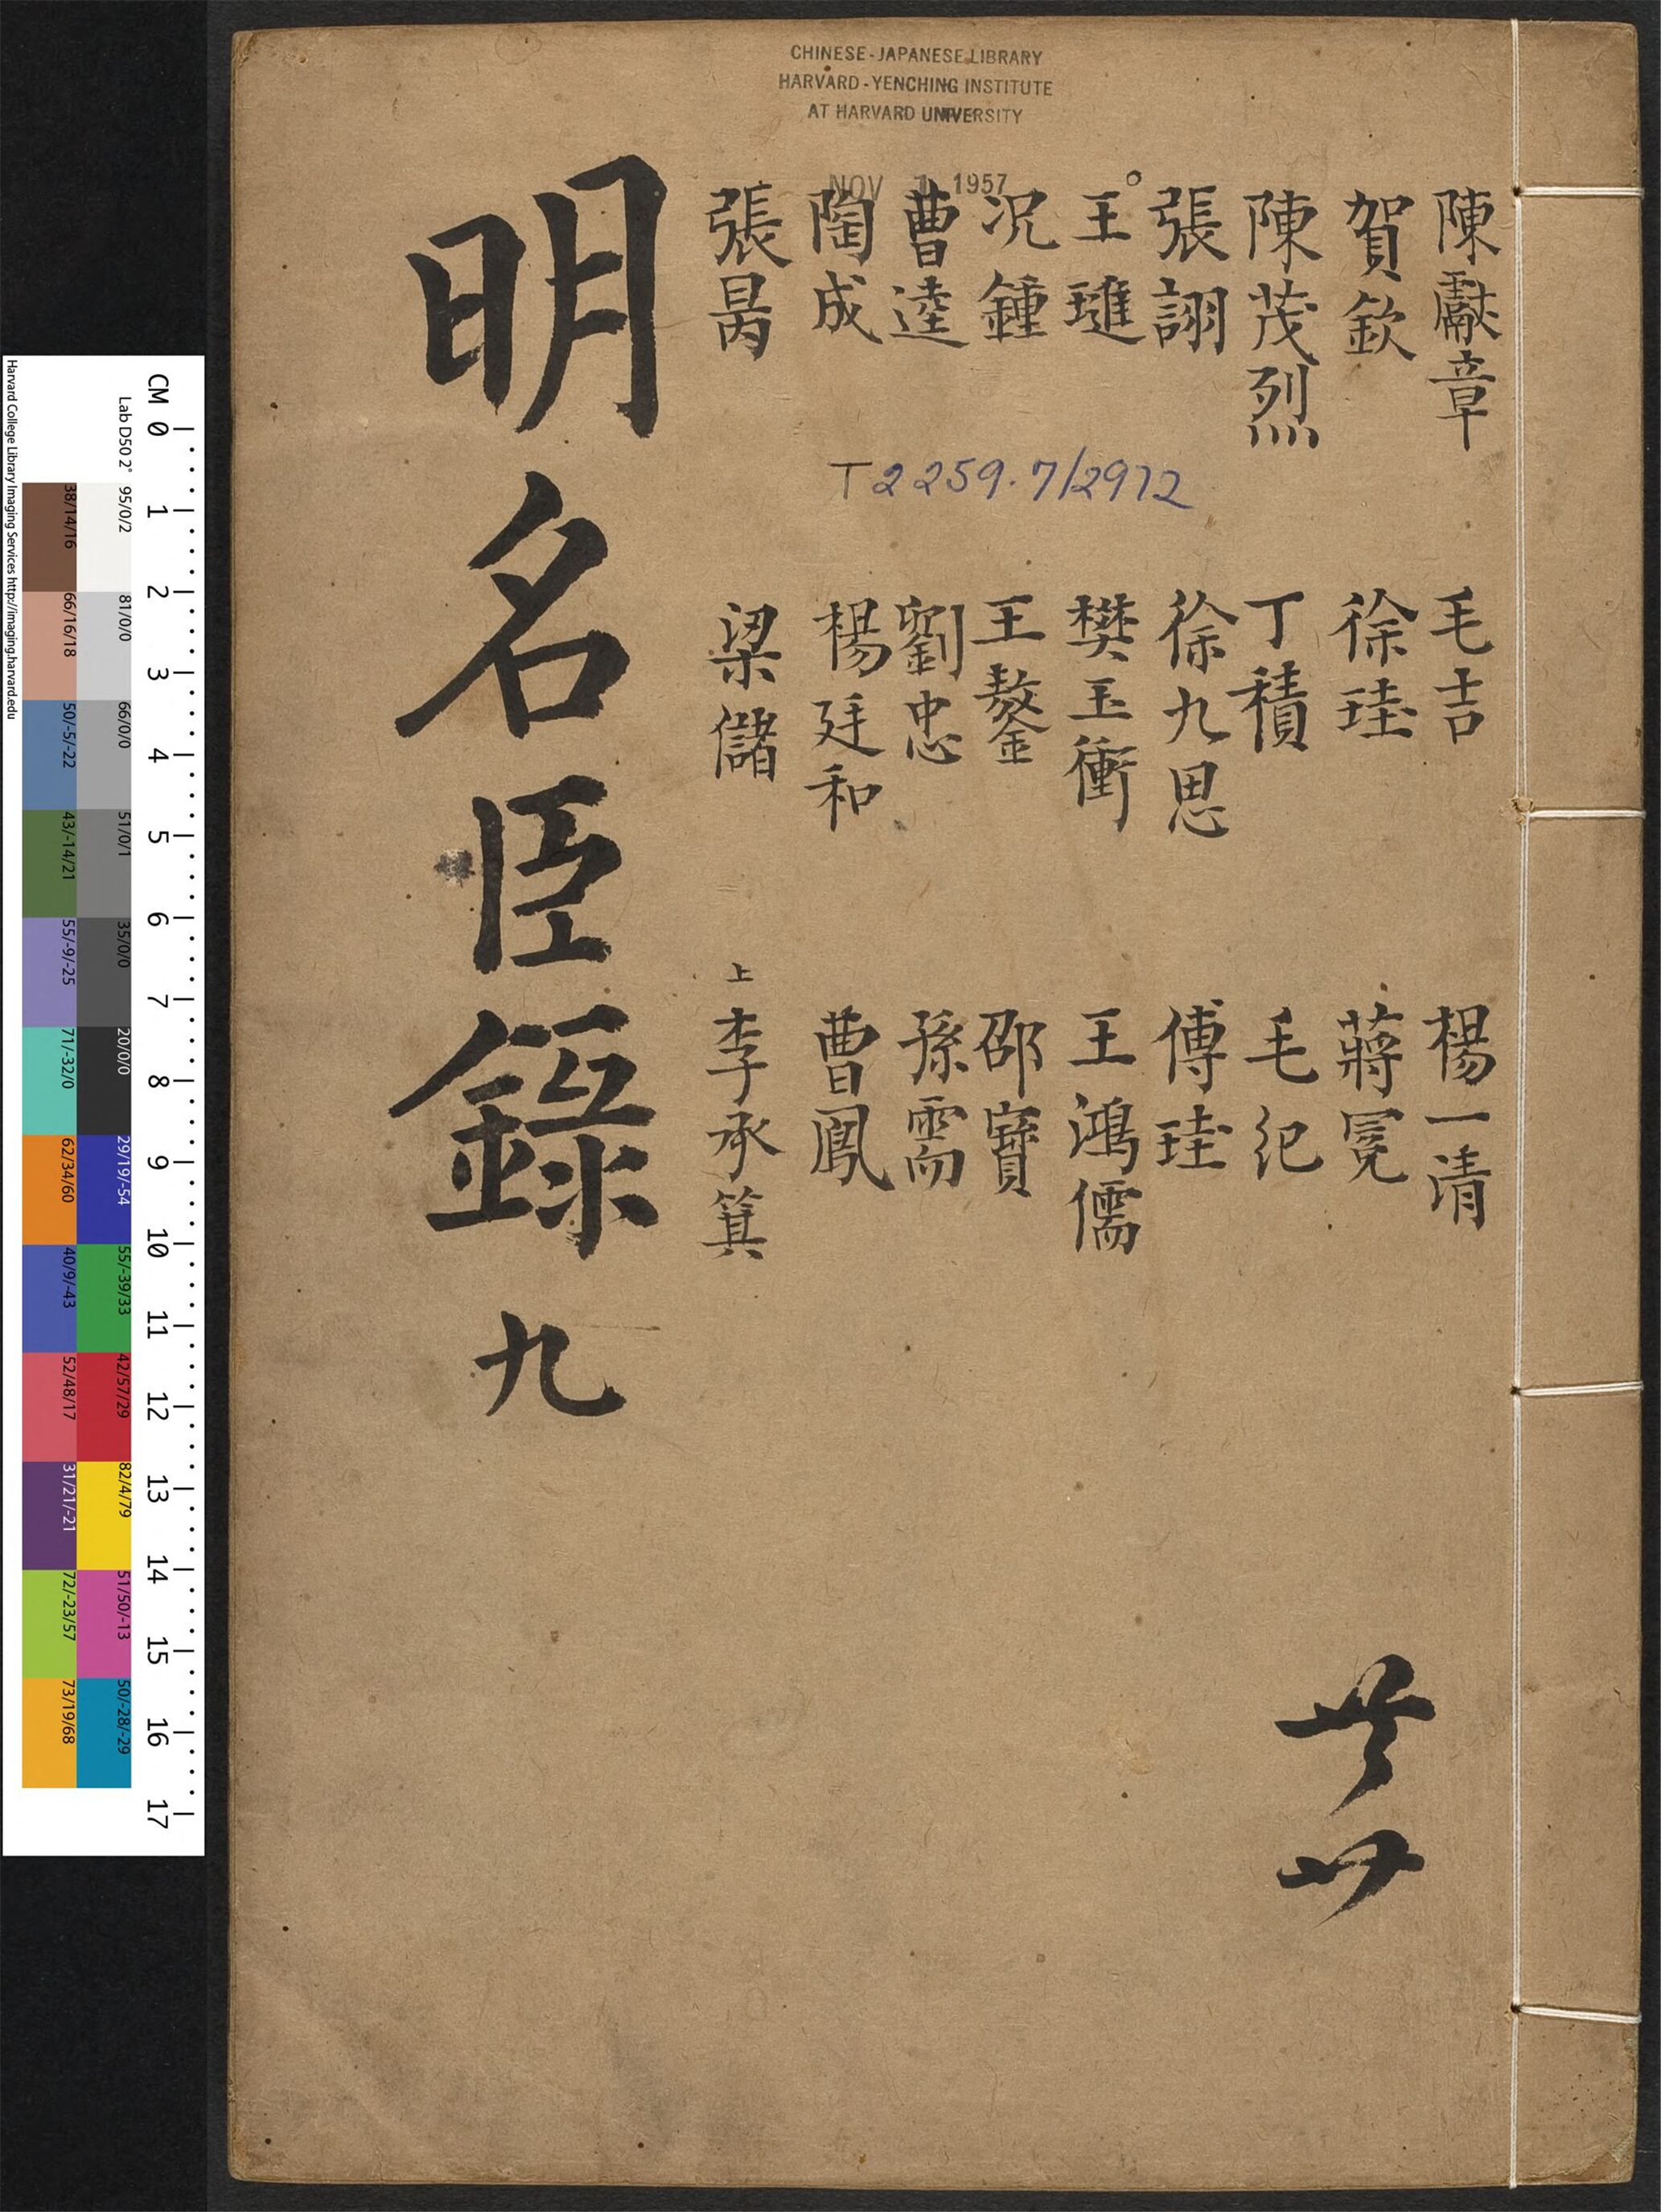 CHINESE-JAPANESE LIBRARY
HARVARD-YENCHING INSTITUTE
AT HARVARD UNIVERSITY
NOV 1 1957
陳獻章
賀欽
陳茂烈
張詡
王璡
况鍾
曹逵
陶成
張昺
T2259.7/2972
毛吉
徐珪
丁積
徐九思
樊玉衝
王鏊
劉忠
楊廷和
梁儲
楊一清
蔣冕
毛紀
傅珪
王鴻儒
邵寶
孫需
曹鳳
上
李承箕
明名臣錄 九
CM 0 1 2 3 4 5 6 7 8 9 10 11 12 13 14 15 16 17
Lab D50 2°
95/0/2
81/0/0
66/0/0
51/0/1
35/0/0
20/0/0
29/19/-54
55/-39/33
42/57/29
82/4/79
51/50/-13
50/-28/-29
38/14/16
66/16/18
50/-5/-22
43/-14/21
55/-9/-25
71/-32/0
62/34/60
40/9/-43
52/48/17
31/21/-21
72/-23/57
73/19/68
Harvard College Library Imaging Services http://imaging.harvard.edu